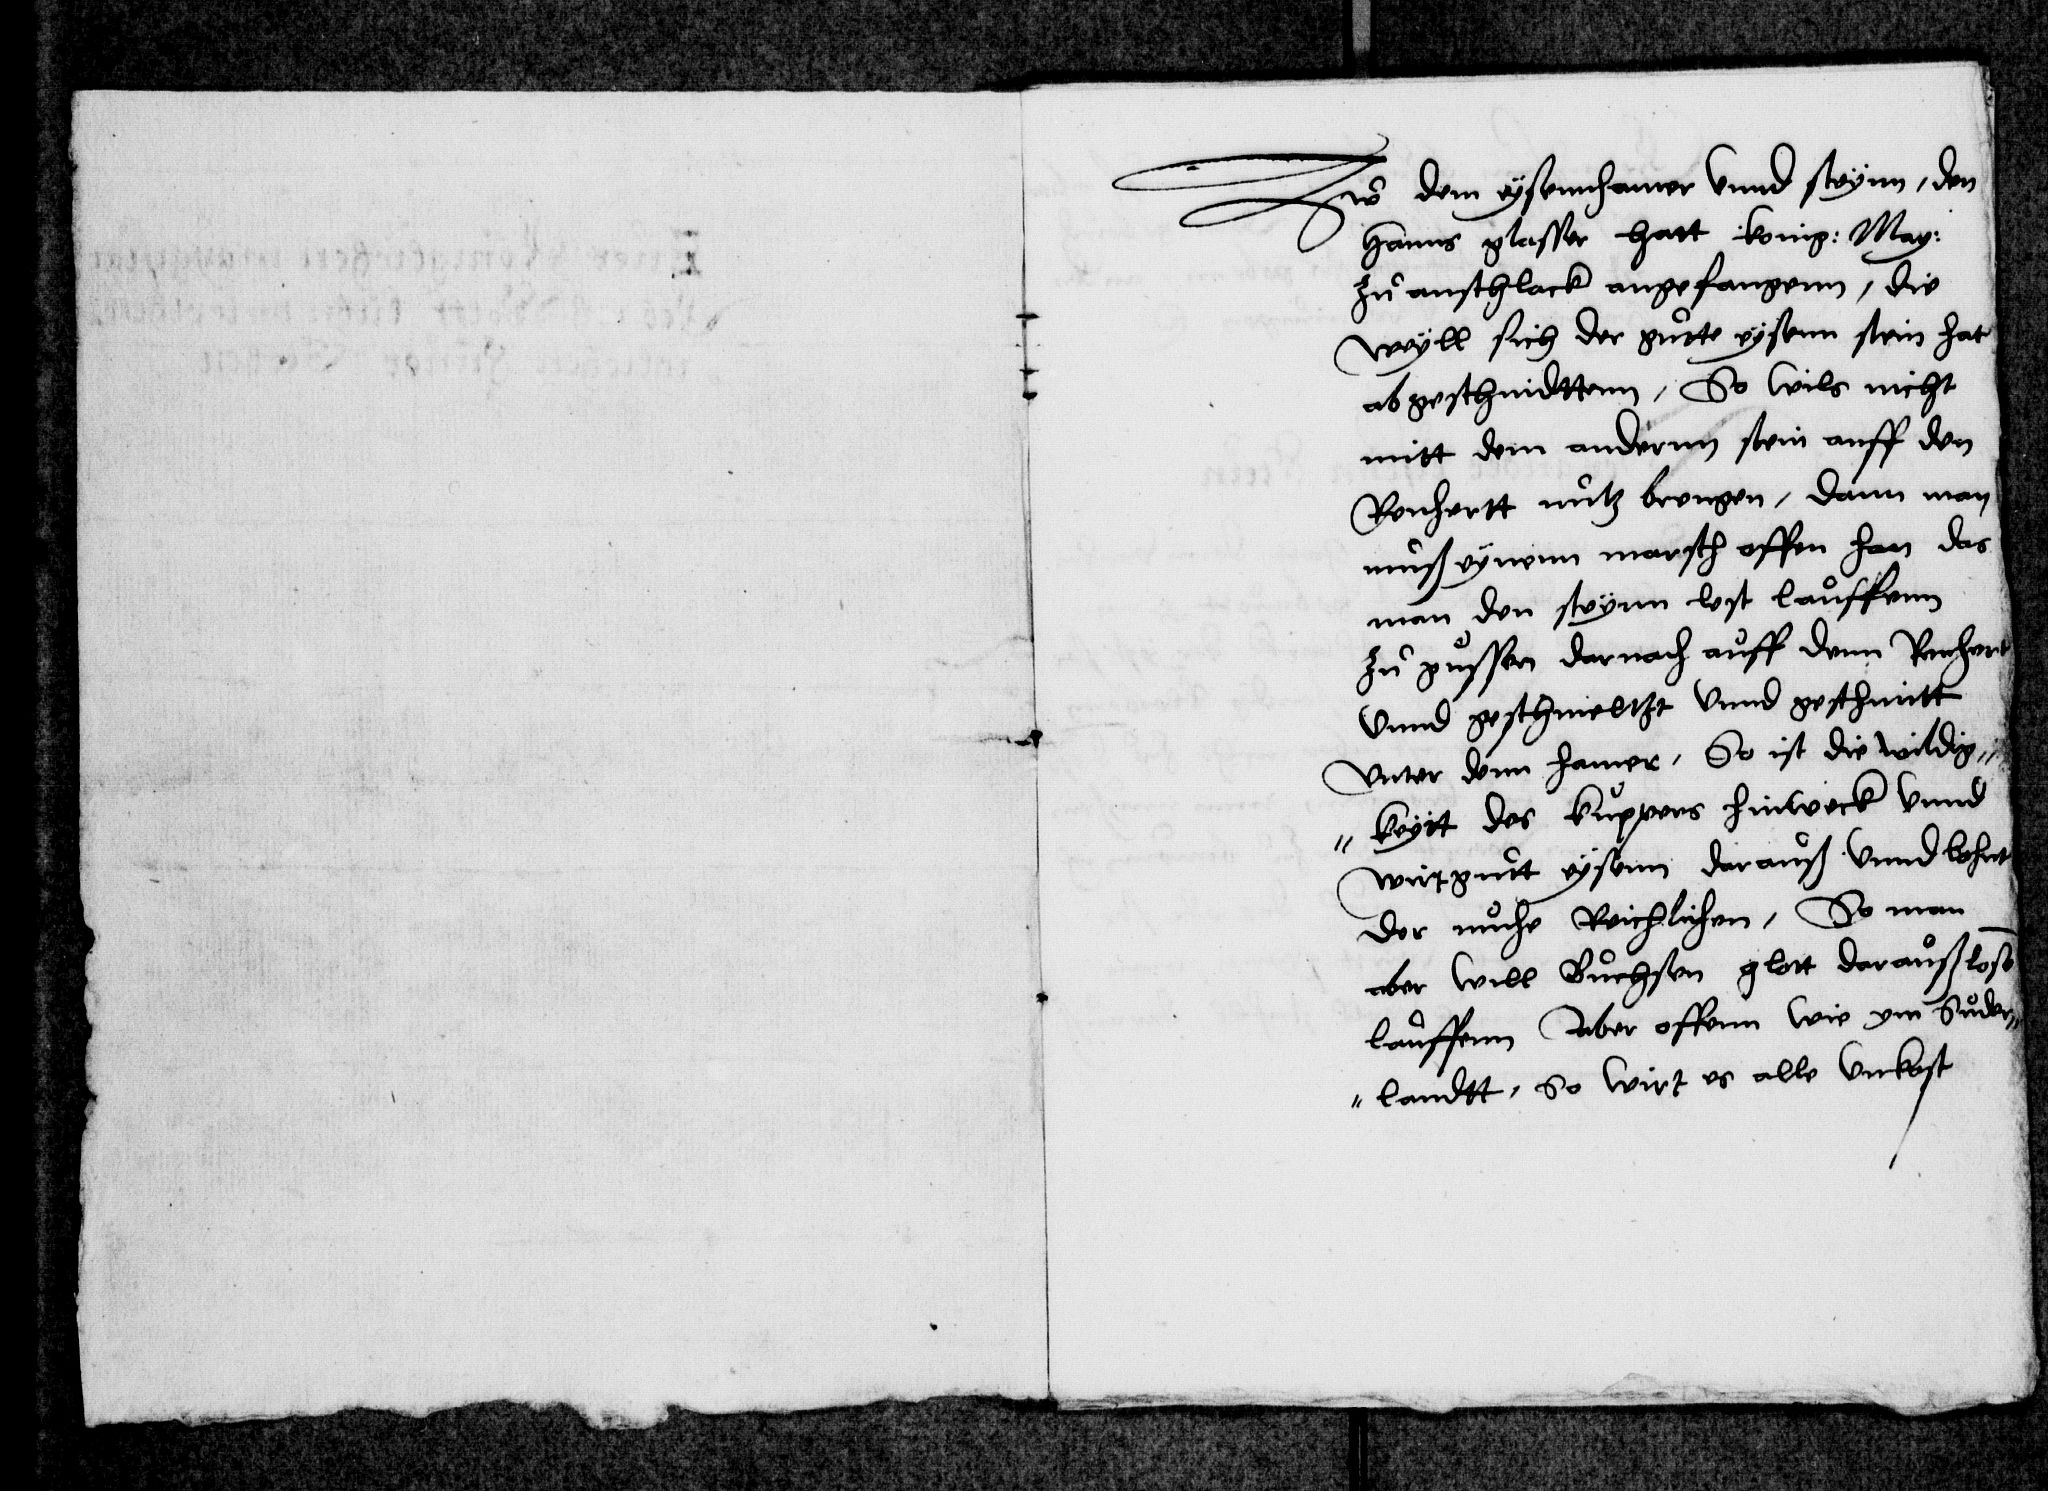 Zw dem eysennhamer vnnd steynn, den
Hanns glasser hatt konig: May:
zu anschlack angefangenn, die
weyll sich der gutte eysenn stein hat
abgeschnidttenn, So wils nicht
mitt dem andernn stein auff den
Renhertt nutz brengen, dann man
muß eynenn marsch offen han das
man den steynn lest lauffenn
zu gussen darnach auff denn Renhert
vnnd geschmeltzt vnnd geschmitt
vnter denn hamer, So ist die wildig„
„keytt des kuppers hinweck vnnd
wirt gutt eysenn darauß vnnd lohnt
der muhe Reichlichen, So man
aber will Buchsen glott darauß lose
lauffenn Aber offenn wie ym Suder„
„landtt, So wirt es alle vnkost